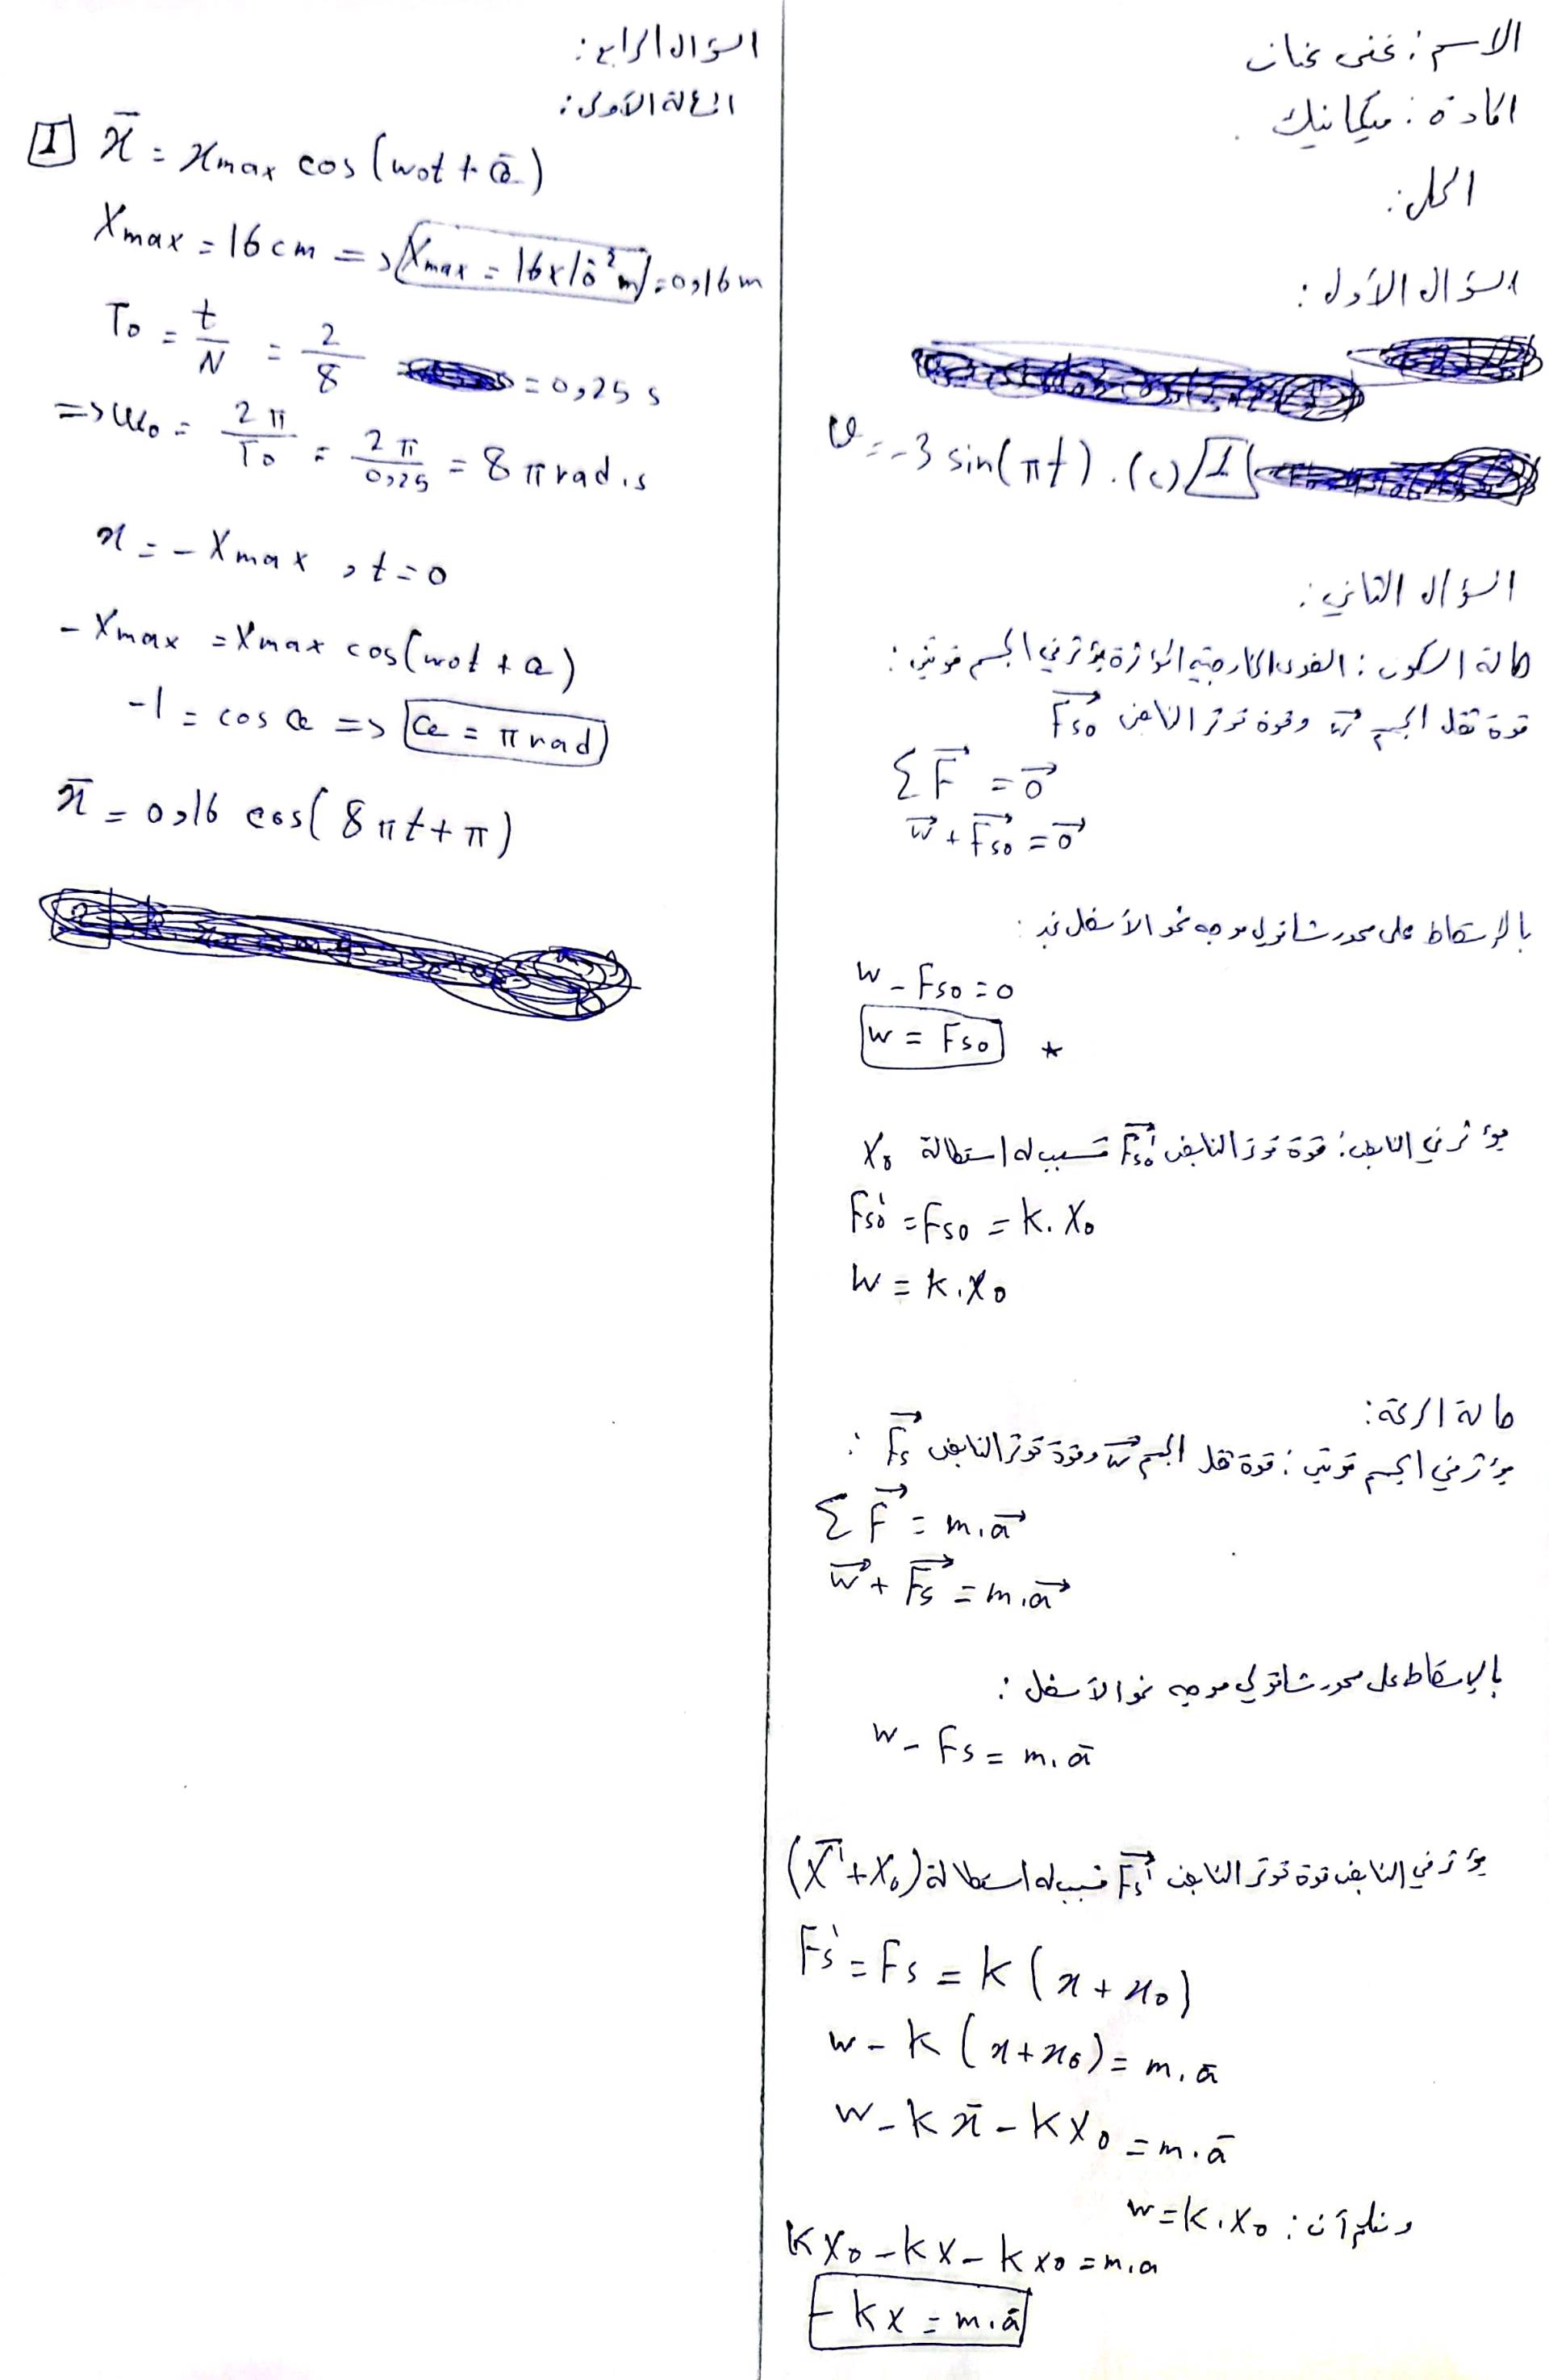 الاسم : غنى غنان
المادة : ميكانيك
الحل :
السؤال الأول :
v = -3 sin(πt) . (c) 1
السؤال الثاني :
حالة السكون : القوى الخارجية المؤثرة يؤثر في الجسم قوتين :
قوة ثقل الجسم w⃗ وقوة توتر النابض F⃗s₀
ΣF⃗ = 0⃗
w⃗ + F⃗s₀ = 0⃗
بالإسقاط على محور شاقولي موجه نحو الأسفل نجد :
w - Fs₀ = 0
w = Fs₀ *
يؤثر في النابض : قوة توتر النابض F⃗'s₀ تسبب له استطالة x₀
F's₀ = Fs₀ = k . x₀
w = k . x₀
حالة الحركة :
يؤثر في الجسم قوتين : قوة ثقل الجسم w⃗ وقوة توتر النابض F⃗s :
ΣF⃗ = m . a⃗
w⃗ + F⃗s = m . a⃗
بالإسقاط على محور شاقولي موجه نحو الأسفل :
w - Fs = m . a̅
يؤثر في النابض قوة توتر النابض F⃗'s فتسبب له استطالة (x̅ + x₀)
F's = Fs = k (x + x₀)
w - k (x + x₀) = m . a̅
w - k x̅ - k x₀ = m . a̅
ونعلم أن : w = k . x₀
k x₀ - k x - k x₀ = m . a
- k x = m . a̅
السؤال الرابع :
المسألة الأولى :
1 x̅ = xmax cos (ω₀t + φ̅)
Xmax = 16 cm => Xmax = 16 x 10⁻² m = 0,16 m
T₀ = t/N = 2/8 = 0,25 s
=> ω₀ = 2π/T₀ = 2π/0,25 = 8 π rad . s
x = - Xmax , t = 0
- Xmax = Xmax cos (ω₀t + φ)
-1 = cos φ => φ = π rad
x̅ = 0,16 cos( 8πt + π )